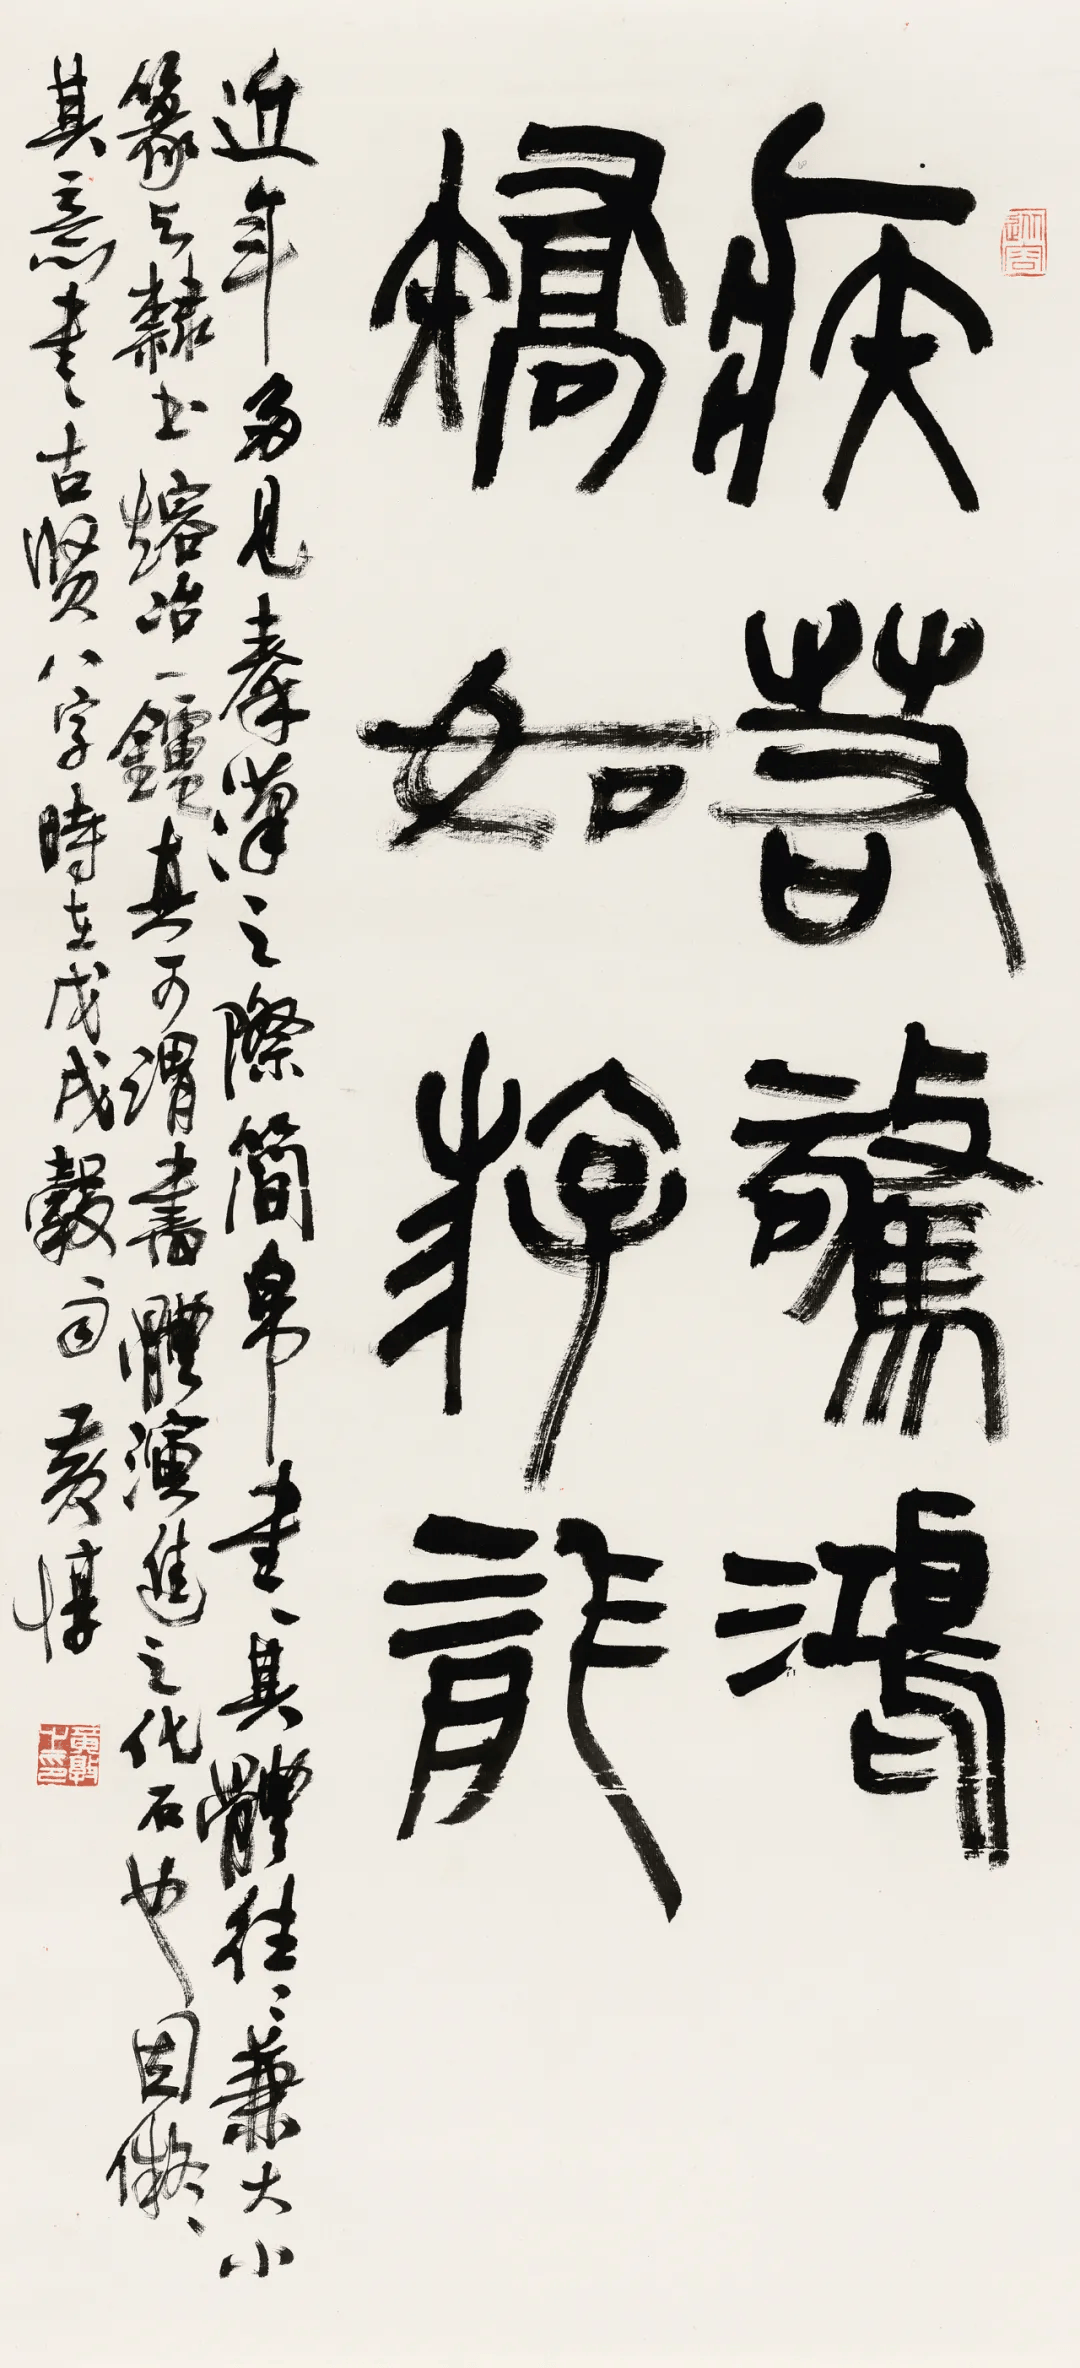 疾若驚鴻
矯如游龍
近年多見秦漢之際簡帛書其體往往兼大小
篆與隸書熔冶一鑪真可謂書體演進之化石也因擬
其意書古賢八字時在戊戌穀雨黃惇